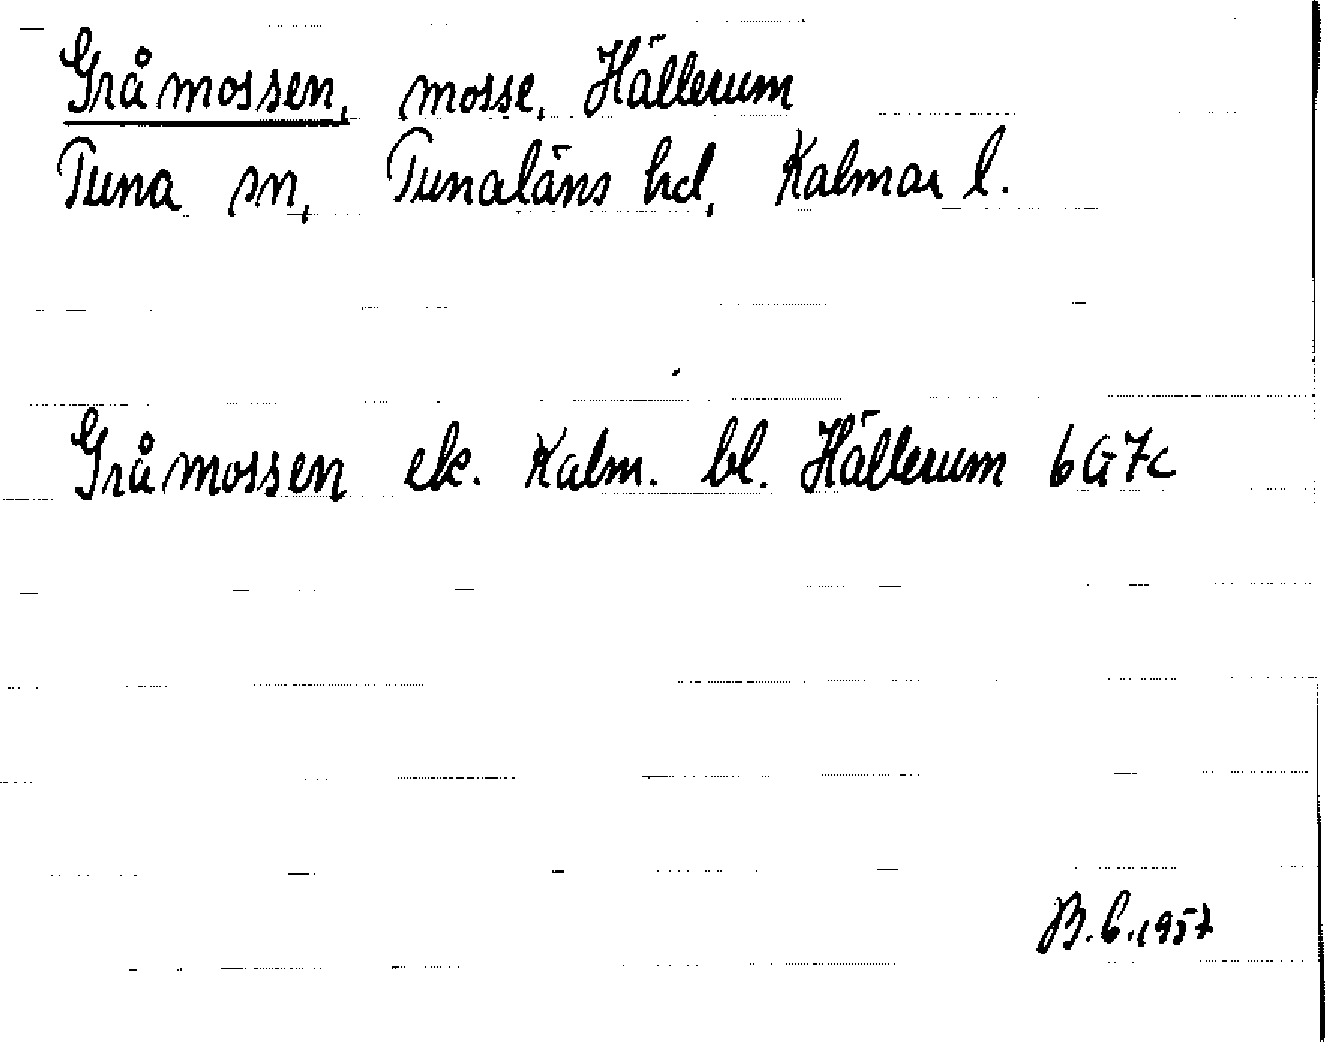 Gråmossen, mosse, Hällerum
Tuna sn, Tunaläns hd, Kalmar l.
Gråmossen ek. Kalm. bl. Hällerum 6G7c
B.C.1957